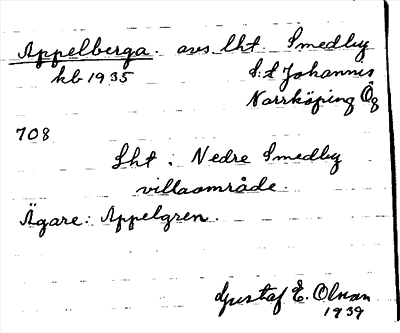 Appelberga. avs lht. Smedby
kb 1935
S:t Johannis
Norrköping Ög
708
Lht i Nedre Smedby
villaområde.
Ägare: Appelgren.
Gustaf E. Olson
1939